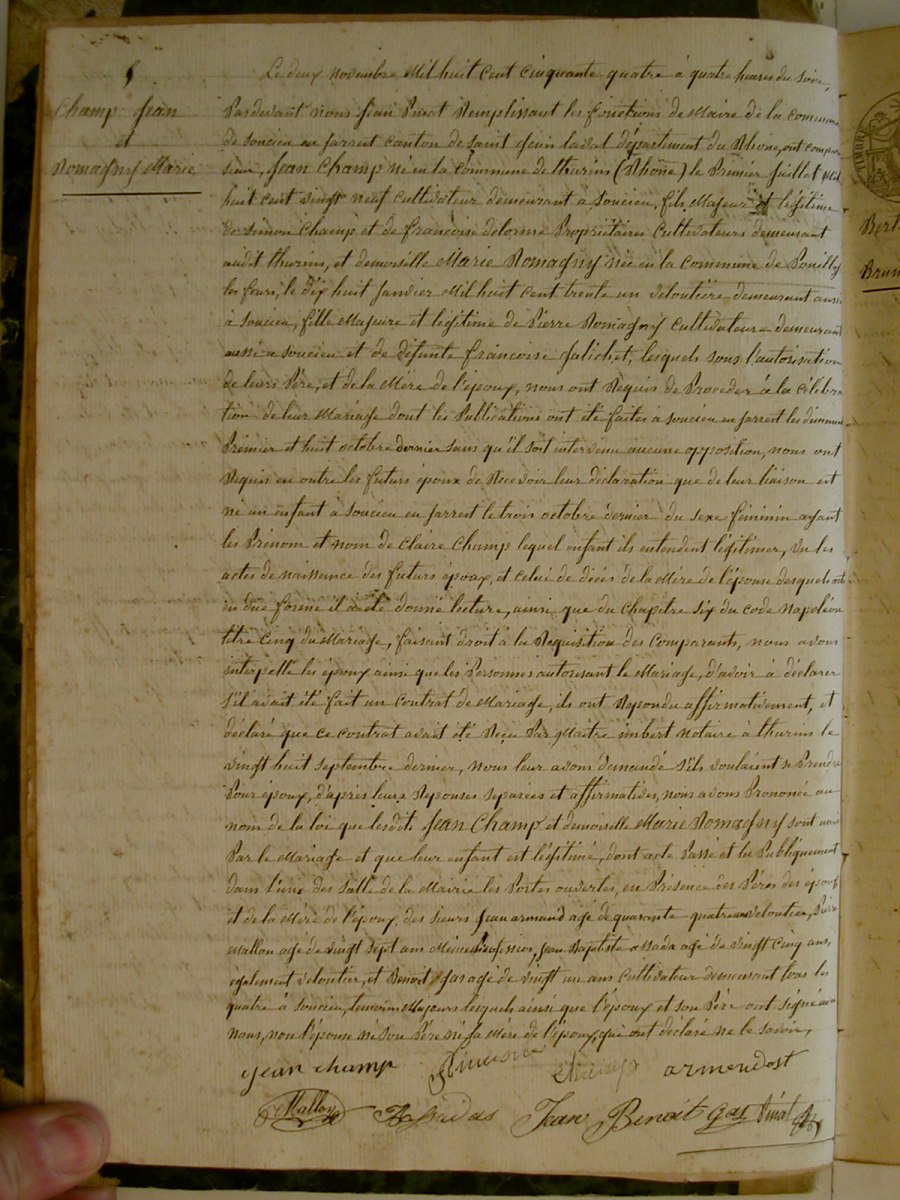 5
Champ Jean
et
Romagny Marie
Le deux novembre Mil huit cent cinquante quatre à quatre heures du soir,
Pardevant nous Jean Pinat Remplissant les fonctions de Maire de la commune
de soucieu en jarrest canton de saint Genis laval département du Rhône, ont comparu
sieur, Jean Champ né en la Commune de thurins (Rhône) le Premier Juillet Mil
huit cent vingt neuf cultivateur demeurant à soucieu, fils Majeur et légitime
de simon Champ et de françoise delorme Propriétaires Cultivateurs demeurant
audit thurins, et demoiselle Marie Romagny née en la Commune de Pouilly
les feurs, le dix huit Janvier Mil huit cent trente un veloutière demeurant aussi
à Soucieu, fille Majeure et légitime de Pierre Romagny Cultivateur demeurant
aussi à soucieu et de défunte françoise Jalichet, lesquels sous l'autorisation
de leurs Père, et de la Mère de l'époux, nous ont Requis de Procéder à la célébra
tion de leur Mariage dont les Publications ont été faites à soucieu en jarrest les dimanches
Prémier et huit octobre dernier sans qu'il soit intervenu aucune opposition, nous ont
Requis en outre les futurs époux de Recevoir leur déclaration que de leur liaison est
né un enfant à soucieu en jarrest le trois octobre dernier du sexe féminin ayant
les Prénom et nom de Claire Champ lequel enfant ils entendent légitimer, Vu les
actes de naissance des futurs époux, et celui de dicés de la Mère de l'épouse desquels
en due forme il a été donné lecture, ainsi que du Chapitre six du code Napoléon
titre Cinq du Mariage, faisant droit à la Requisition des Comparants, nous avons
interpellé les époux ainsi que les Personnes autorisant le Mariage, d'avoir à déclarer
s'il avait été fait un contrat de Mariage, ils ont Repondu affirmativement, et
déclaré que ce contrat avait été Reçu Par Maître imbert notaire à thurins le
vingt huit septembre dernier, nous leur avons demandé s'ils voulaient se Prendre
Pour époux, d'après leurs Reponses separées et affirmatives, nous avons Prononcé au
nom de la loi que lesdits Jean Champ et demoiselle Marie Romagny sont unis
Par le Mariage et que leur enfant est légitimé, dont acte Passé et lu Publiquement
dans l'une des salle de la Mairie les Portes ouvertes, en Présence des Pères des époux
et de la Mère de l'époux, des sieurs Jean armand agé de quarante quatre ans veloutier, Pierre
Mallon agé de vingt sept ans Même Profession, Jean Baptiste agé de vingt cinq ans,
également veloutier, et Benoit Gas agé de vingt un ans Cultivateur demeurant tous les
quatre à Soucieu, temoins Majeurs lesquels ainsi que l'époux et son Père ont signé avec
nous, non l'épouse ni son Père ni la Mère de l'époux, qui ont déclaré ne le savoir.
Jean champ Champ armendost
Mallon Jean Benoît Gas Pinat
TIMBRE
Bert
Brun